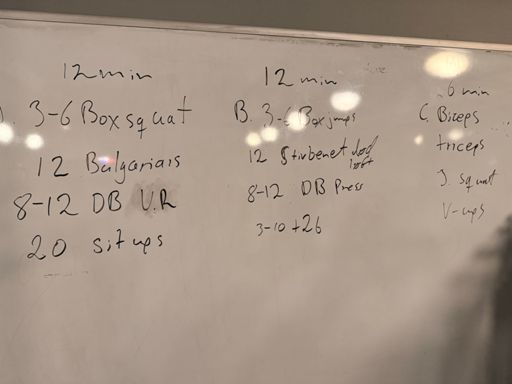 12 min
3-6 Box squat
12 Bulgarians
8-12 DB U.R
20 sit ups
12 min
B. 3-6 Box jumps
12 Stivbenet
8-12 DB Press
3-10 + 26
6 min
C. Biceps
triceps
J. squat
V-ups